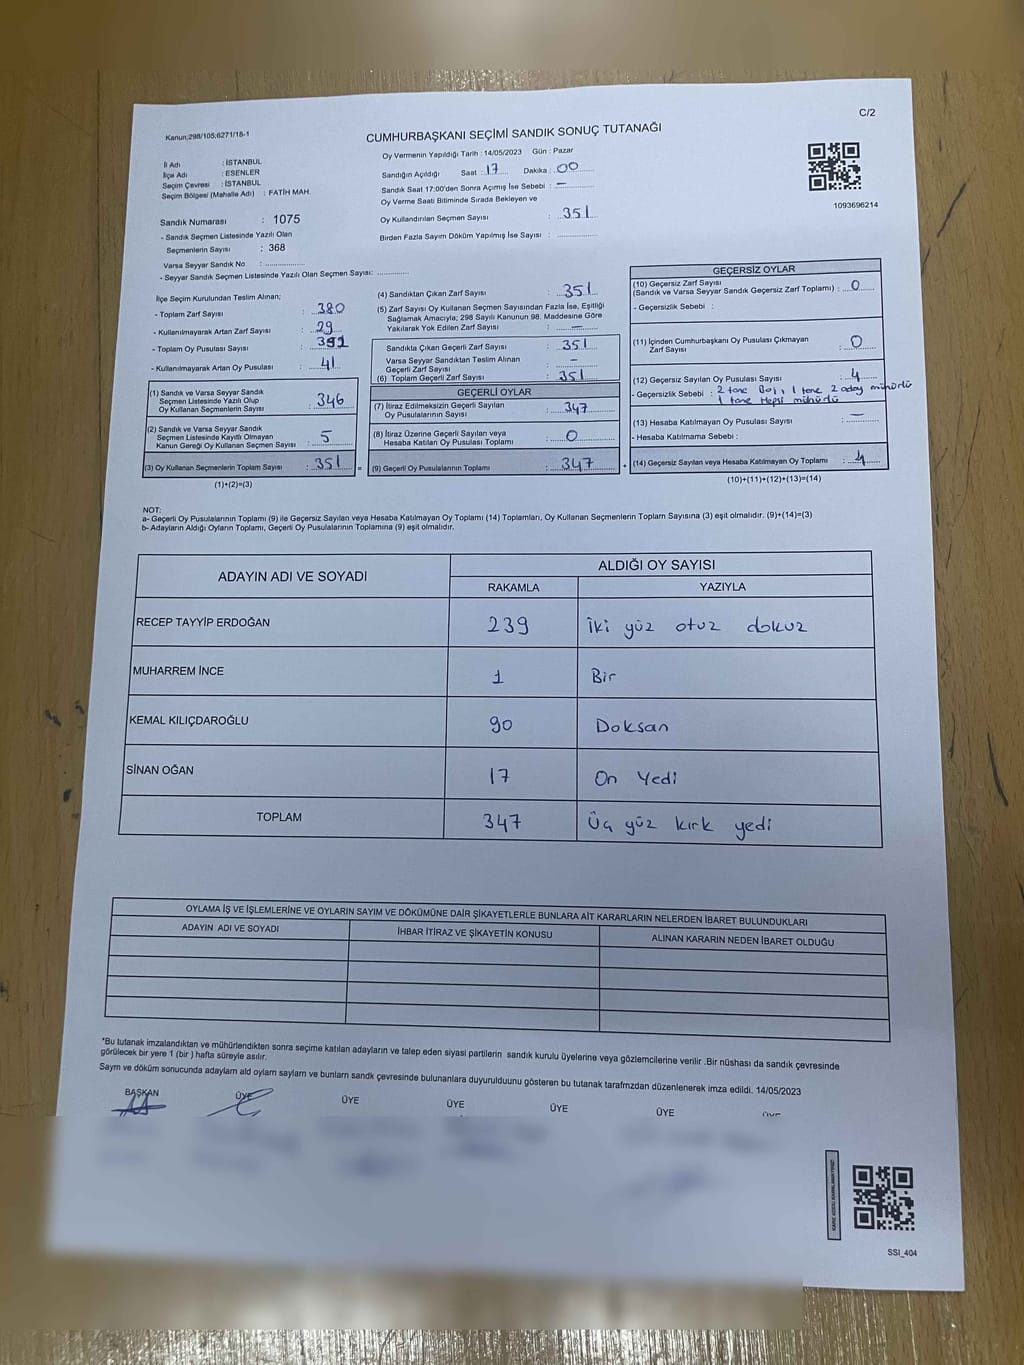 C/2
Kanun:298/105;6271/18-1
CUMHURBAŞKANI SEÇİMİ SANDIK SONUÇ TUTANAĞI
İl Adı : İSTANBUL
İlçe Adı : ESENLER
Seçim Çevresi : İSTANBUL
Seçim Bölgesi (Mahalle Adı) : FATİH MAH.
Sandık Numarası : 1075
- Sandık Seçmen Listesinde Yazılı Olan
Seçmenlerin Sayısı : 368
Varsa Seyyar Sandık No : ..............
- Seyyar Sandık Seçmen Listesinde Yazılı Olan Seçmen Sayısı: ............
Oy Vermenin Yapıldığı Tarih : 14/05/2023 Gün : Pazar
Sandığın Açıldığı Saat : 17 Dakika : 00
Sandık Saat 17:00'den Sonra Açımış İse Sebebi : —
Oy Verme Saati Bitiminde Sırada Bekleyen ve
Oy Kullandırılan Seçmen Sayısı : 351
Birden Fazla Sayım Döküm Yapılmış İse Sayısı : ..............
1093696214
İlçe Seçim Kurulundan Teslim Alınan;
- Toplam Zarf Sayısı : 380
- Kullanılmayarak Artan Zarf Sayısı : 29
- Toplam Oy Pusulası Sayısı :
- Kullanılmayarak Artan Oy Pusulası : 41
(1) Sandık ve Varsa Seyyar Sandık
Seçmen Listesinde Yazılı Olup
Oy Kullanan Seçmenlerin Sayısı : 346
(2) Sandık ve Varsa Seyyar Sandık
Seçmen Listesinde Kayıtlı Olmayan
Kanun Gereği Oy Kullanan Seçmen Sayısı : 5
(3) Oy Kullanan Seçmenlerin Toplam Sayısı : 351 =
(1)+(2)=(3)
(4) Sandıktan Çıkan Zarf Sayısı : 351
(5) Zarf Sayısı Oy Kullanan Seçmen Sayısından Fazla İse, Eşitliği
Sağlamak Amacıyla; 298 Sayılı Kanunun 98. Maddesine Göre
Yakılarak Yok Edilen Zarf Sayısı : —
Sandıkta Çıkan Geçerli Zarf Sayısı : 351
Varsa Seyyar Sandıktan Teslim Alınan
Geçerli Zarf Sayısı : —
(6) Toplam Geçerli Zarf Sayısı : 351
GEÇERLİ OYLAR
(7) İtiraz Edilmeksizin Geçerli Sayılan
Oy Pusulalarının Sayısı : 347
(8) İtiraz Üzerine Geçerli Sayılan veya
Hesaba Katılan Oy Pusulası Toplamı : 0
(9) Geçerli Oy Pusulalarının Toplamı : 347 +
GEÇERSİZ OYLAR
(10) Geçersiz Zarf Sayısı
(Sandık ve Varsa Seyyar Sandık Geçersiz Zarf Toplamı) : 0
- Geçersizlik Sebebi :
(11) İçinden Cumhurbaşkanı Oy Pusulası Çıkmayan
Zarf Sayısı : 0
(12) Geçersiz Sayılan Oy Pusulası Sayısı : 4
- Geçersizlik Sebebi : 2 tane Boş, 1 tane 2 aday mühürlü
1 tane Hepsi mühürlü
(13) Hesaba Katılmayan Oy Pusulası Sayısı : —
- Hesaba Katılmama Sebebi :
(14) Geçersiz Sayılan veya Hesaba Katılmayan Oy Toplamı : 4
(10)+(11)+(12)+(13)=(14)
NOT:
a- Geçerli Oy Pusulalarının Toplamı (9) ile Geçersiz Sayılan veya Hesaba Katılmayan Oy Toplamı (14) Toplamları, Oy Kullanan Seçmenlerin Toplam Sayısına (3) eşit olmalıdır. (9)+(14)=(3)
b- Adayların Aldığı Oyların Toplamı, Geçerli Oy Pusulalarının Toplamına (9) eşit olmalıdır.
ADAYIN ADI VE SOYADI
ALDIĞI OY SAYISI
RAKAMLA YAZIYLA
RECEP TAYYİP ERDOĞAN 239 iki yüz otuz dokuz
MUHARREM İNCE 1 Bir
KEMAL KILIÇDAROĞLU 90 Doksan
SİNAN OĞAN 17 On Yedi
TOPLAM 347 Üç yüz kırk yedi
OYLAMA İŞ VE İŞLEMLERİNE VE OYLARIN SAYIM VE DÖKÜMÜNE DAİR ŞİKAYETLERLE BUNLARA AİT KARARLARIN NELERDEN İBARET BULUNDUKLARI
ADAYIN ADI VE SOYADI İHBAR İTİRAZ VE ŞİKAYETİN KONUSU ALINAN KARARIN NEDEN İBARET OLDUĞU
*Bu tutanak imzalandıktan ve mühürlendikten sonra seçime katılan adayların ve talep eden siyasi partilerin sandık kurulu üyelerine veya gözlemcilerine verilir .Bir nüshası da sandık çevresinde
görülecek bir yere 1 (bir ) hafta süreyle asılır.
Sayım ve döküm sonucunda adayların ald oyların sayların ve bunların sandk çevresinde bulunanlara duyurulduunu gösteren bu tutanak tarafmzdan düzenlenerek imza edildi. 14/05/2023
BAŞKAN ÜYE ÜYE ÜYE ÜYE ÜYE ÜYE
SSI_404